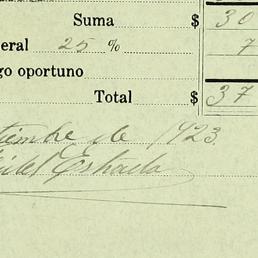 Suma $ 30
eral 25 % 7
go oportuno
Total $ 37
tiembre de 1923.